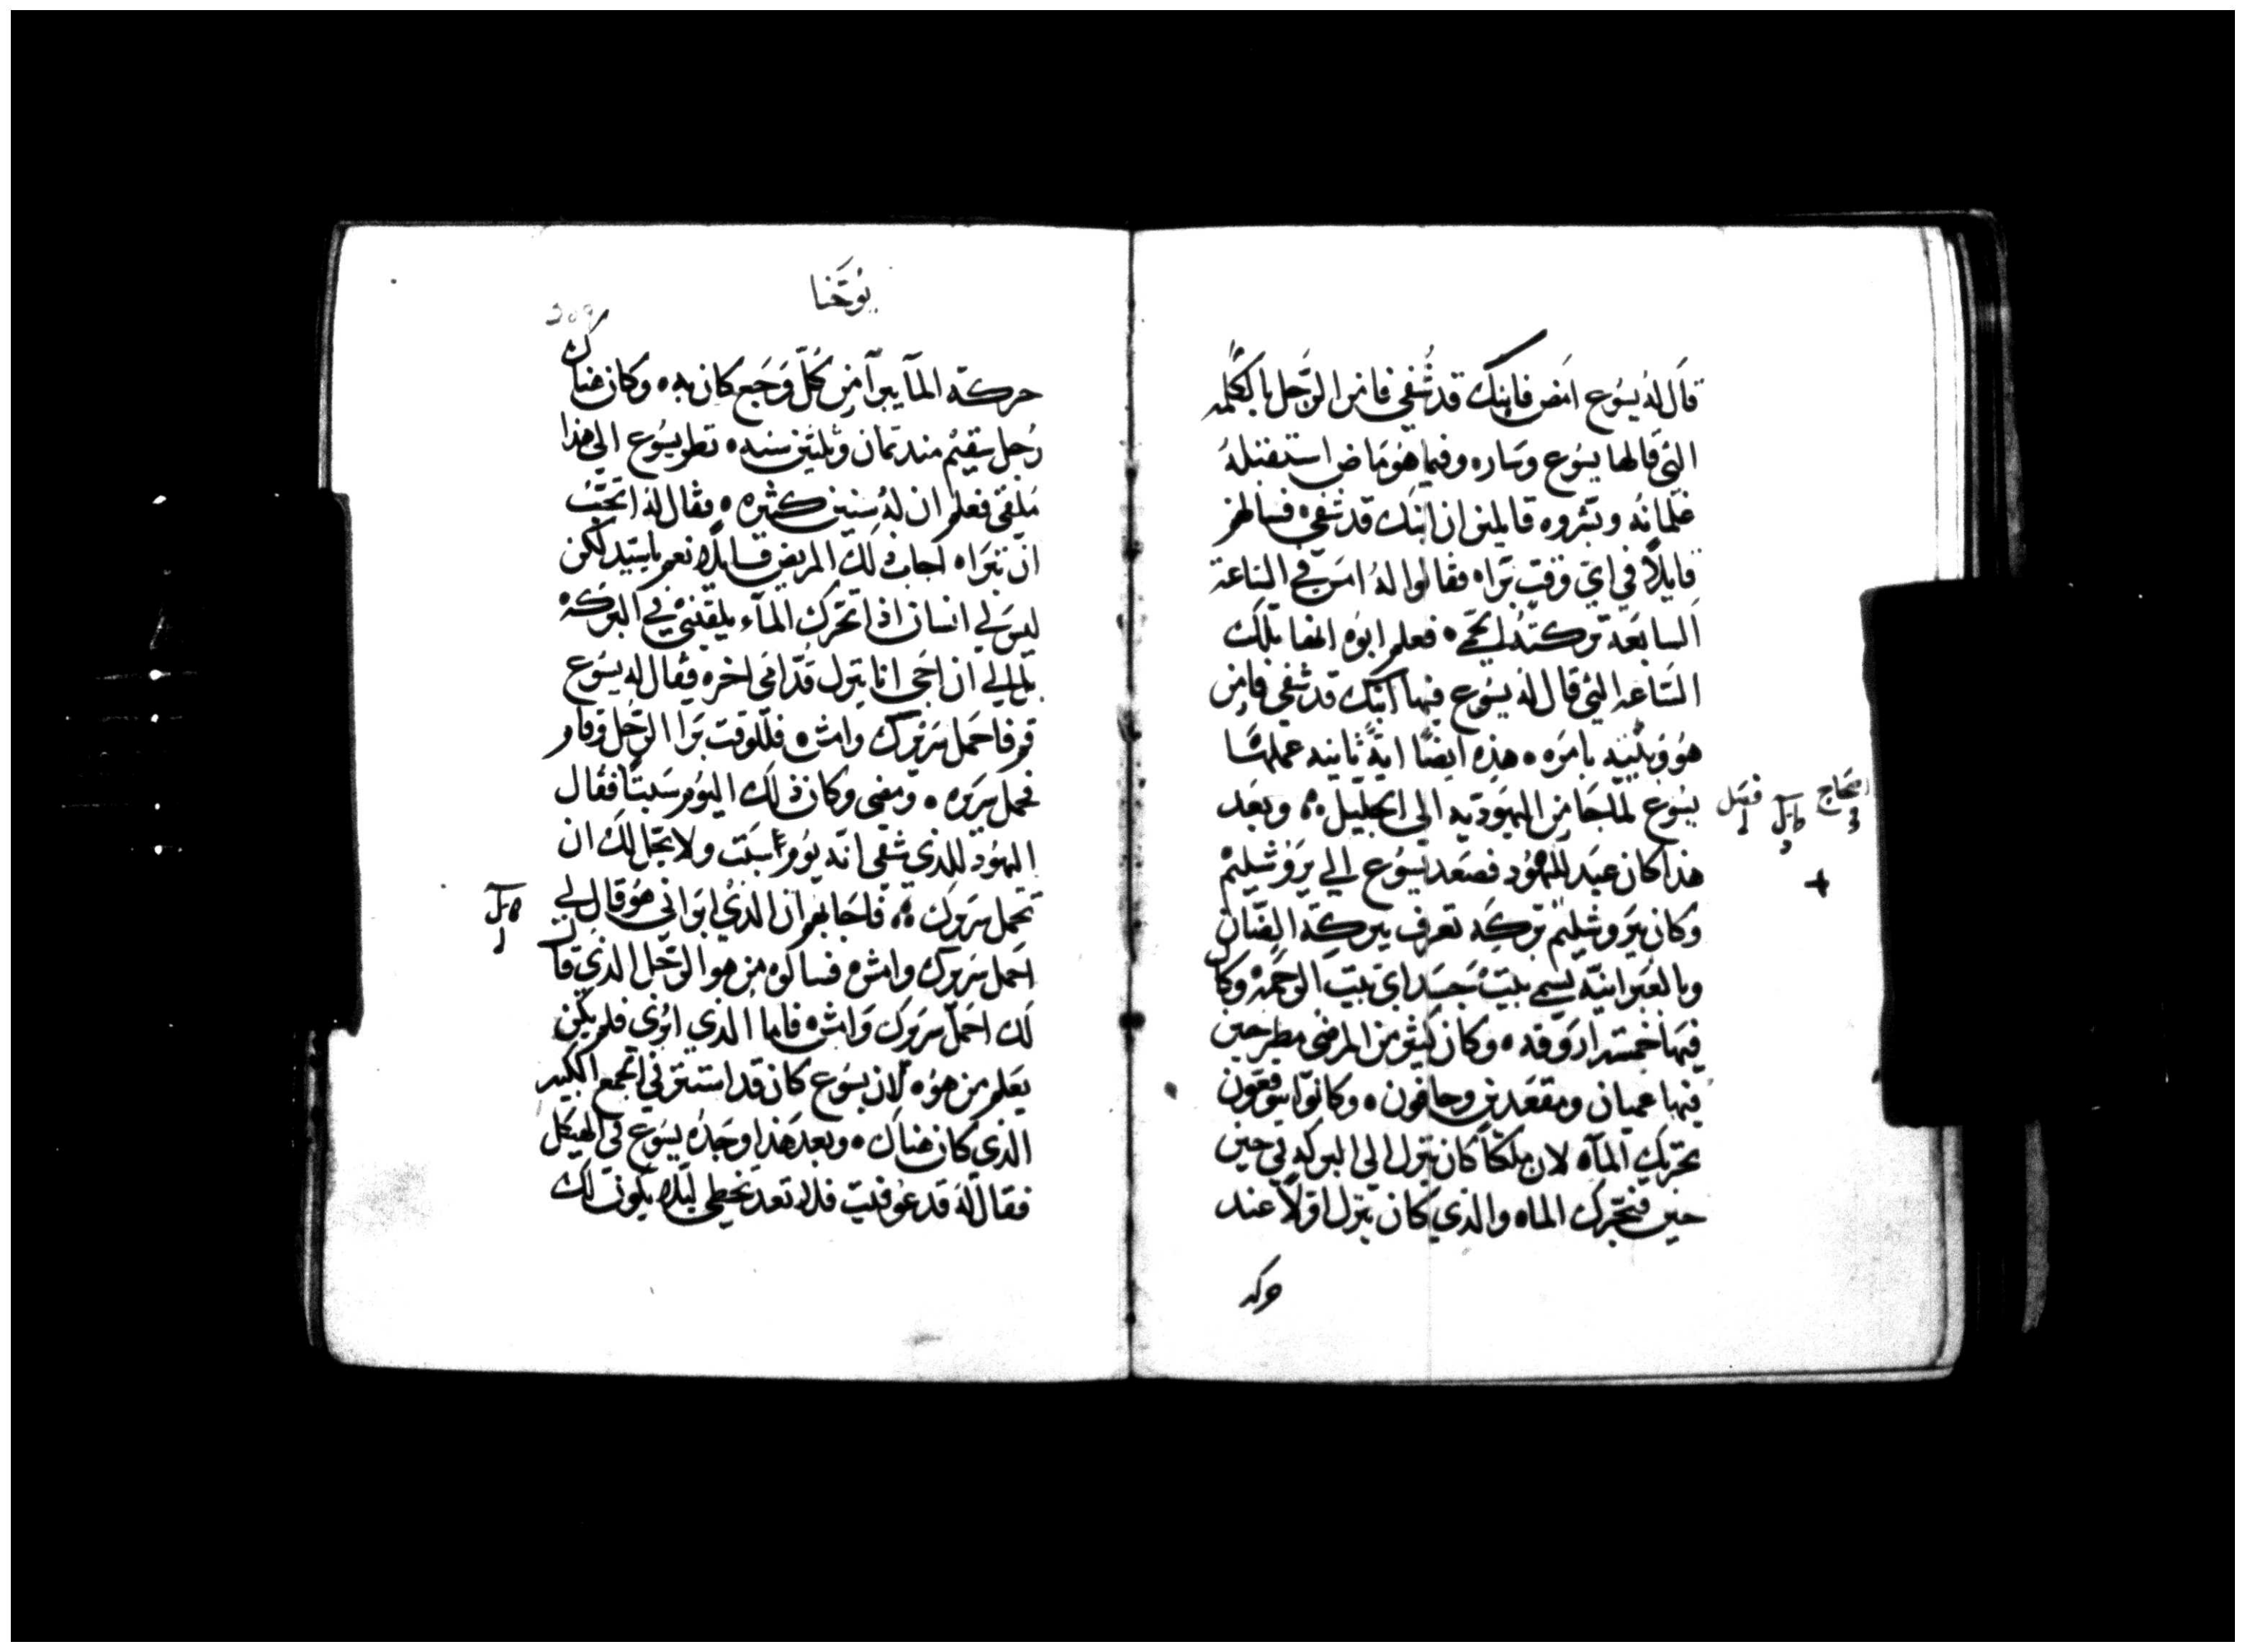 قال له يسوع امض فابنك قد شفي فامن الرجل بالكلمه
التي قالها يسوع وساره وفيما هو ماض استقبله
غلمانه وبشروه قايلين ان ابنك قد شفي ٥ فسالهم
قايلاً في اي وقت براه فقالوا له امس في الساعة
السابعه تركته الحمى ٥ فعلم ابوه انها بتلك
الساعه التي قال له يسوع فيها ابنك قد شفي فامن
هو وبيته باسره ٥ هذه ايضًا ايةً ثانيه عملها
يسوع لما جا من اليهوديه الى الجليل ٥ وبعد
فصل
١
اصحاح
هذا كان عيد لليهود فصعد يسوع الي يروشليم
وكان بيروشليم بركه تعرف ببركة الضان
وبالعبرانيه يسمى بيت جسد اي بيت الرحمة وكان
فيها خمسة اروقه ٥ وكان كثير من المرضى مطرحين
فيها عميان ومقعدين وجافون ٥ وكانوا يتوقعون
تحريك المآه لان ملكاً كان ينزل الي البركه في حين
حين فيتحرك الماه والذي كان ينزل اولاً عند
حركه
يوحنا
حركة المآ يبرآ من كل وجع كان به ٥ وكان هناك
رجل سقيم منذ ثمان وثلثين سنه ٥ نظر يسوع الى هذا
ملقى فعلم ان له سنين كثيره ٥ فقال له اتحب
ان تبراه اجاب ذلك المريض قايلا نعم يا سيد لكن
ليس لي انسان اذا تحرك الماء يلقيني في البركة
بل الي ان اجي انا ينزل قدامي اخره فقال له يسوع
قم فاحمل سريرك وامش ٥ فللوقت برا الرجل وقام
فحمل سريره ٥ ومضى وكان ذلك اليوم سبتًا فقال
اليهود للذي شفى انه يوم السبت ولا يحل لك ان
تحمل سريرك ٥ فاجابهم ان الذي ابراني هو قال لي
احمل سريرك وامش ٥ فسالوه من هو الرجل الذي قال
لك احمل سريرك وامش ٥ فاما الذي ابرى فلم يكن
يعلم من هو ٥ لان يسوع كان قد استتر في الجمع الكبير
الذي كان هناك ٥ وبعد هذا وجده يسوع في الهيكل
فقال له قد عوفيت فلا تعد تخطي ليلا يكون لك